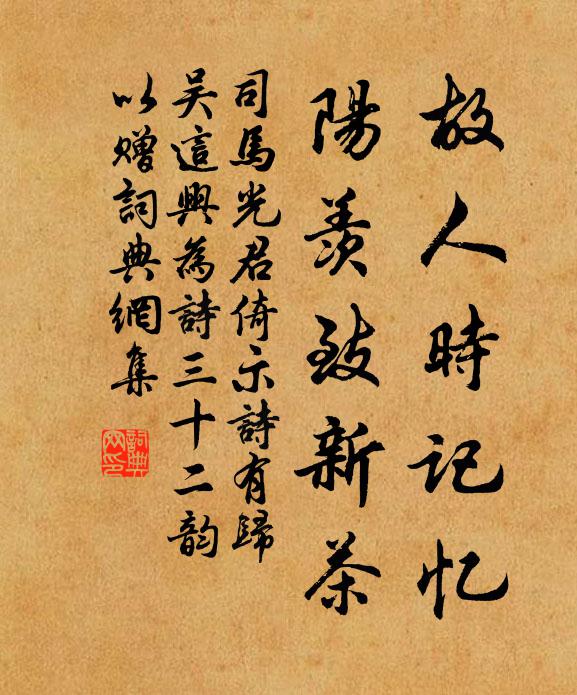 故人時記忆
陽羨致新茶
司馬光君倚示詩有歸
吴這興為詩三十二韵
以贈詞典網集
詞典网印